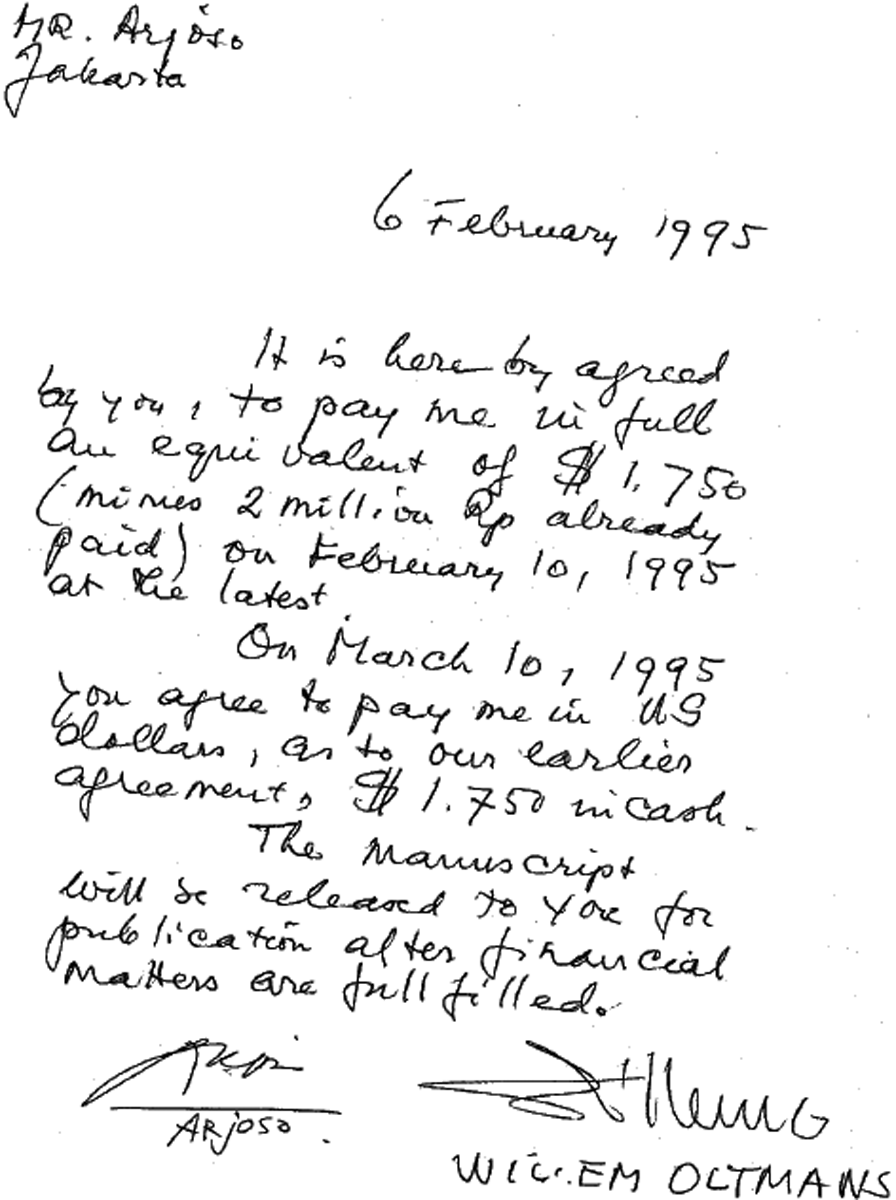 MR. Arjoso
Jakarta
6 February 1995
It is here by agreed
by you, to pay me in full
an equivalent of $ 1.750
(minus 2 million Rp already
paid) on February 10, 1995
at the latest.
On March 10, 1995
you agree to pay me in US
dollars, as to our earlier
agreement, $ 1.750 in cash.
The manuscript
will be released to you for
publication after financial
matters are full filled.
ARJOSO.
WILLEM OLTMANS